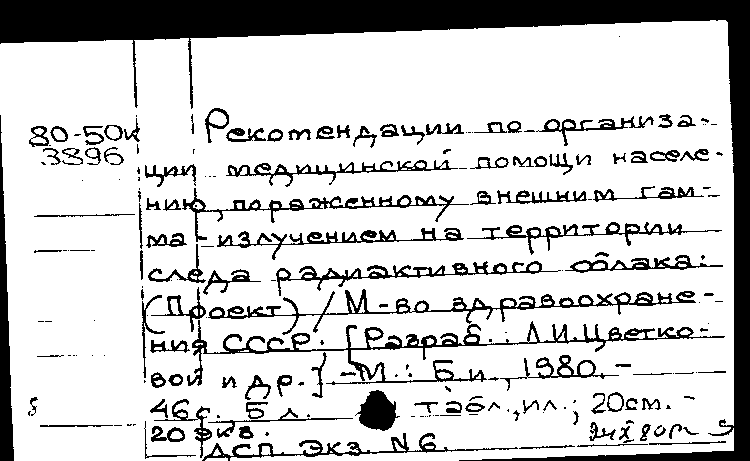 80-50к
3896
Рекомендации по организа-
ции медицинской помощи населе-
нию, пораженному внешним гам-
ма-излучением на территории
следа радиактивного облака:
(Проект) / М-во здравоохране-
ния СССР; [Разраб.: Л.И.Цветко-
вой и др.] -М.: Б.и., 1980. -
46с. 5 л. табл., ил.; 20см. -
20 экз.
ДСП. Экз. N 6.